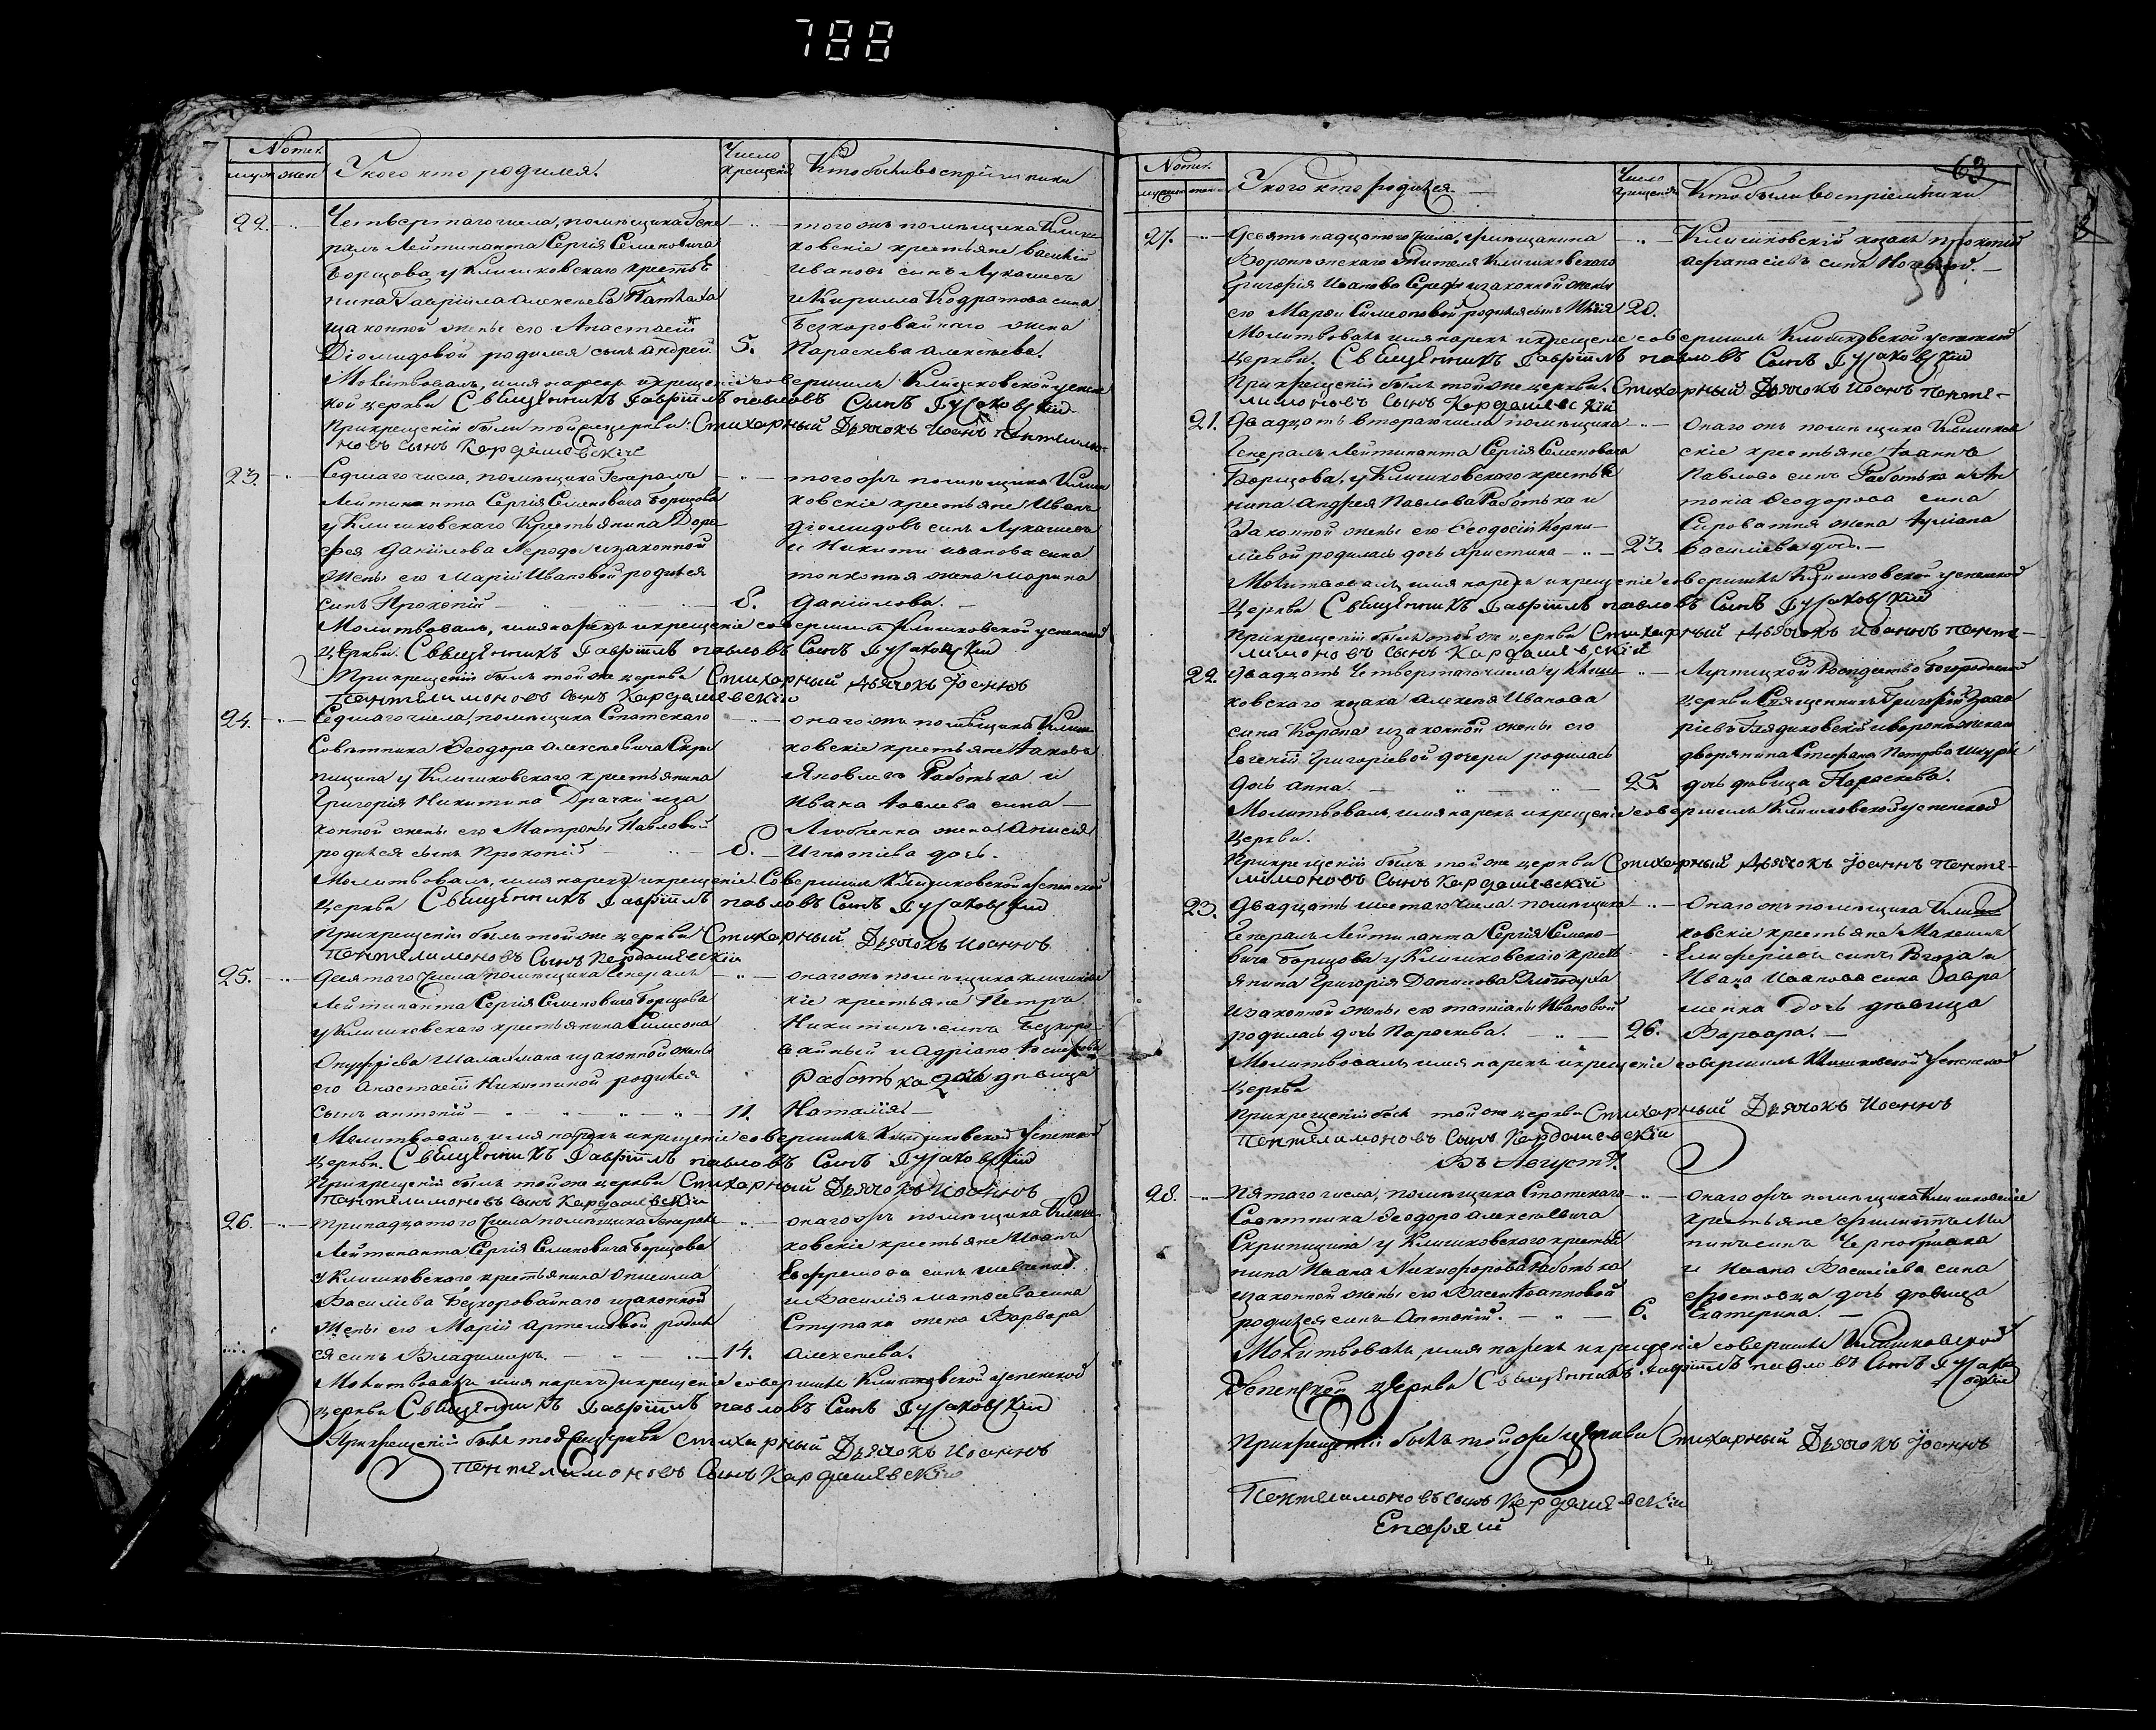 788
Nомеръ
муж. жен.
У кого кто родился.
Число крещенія
Кто были воспріемники
22.
Четвертаго числа, помѣщика Гене
ралъ Лейтинанта Сергія Семеновича
Борщова у Клишковскаго крестья
нина Гавріила Алексѣева
законной жены его Анастасіи
Діомидовой родился сынъ Андрей.
5.
того жъ помѣщика Клиш
ковскіе крестьяне Василій
Ивановъ синъ Лукашевъ
и Кирилла Кодратова сина
Безкоровайнаго жена
Параскева Алексѣева.
Молитвовалъ, имя нарекъ и крещеніе совершилъ Клишковской успен
кой церкви Священникъ Гавріилъ Павловъ Сынъ
При крещеніи былъ той же церкви Стихарный Дьячокъ Иоаннъ Пантелимо
новъ Сынъ Кардашевскій
23.
Седмаго числа, помѣщика Генералъ
Лейтинанта Сергія Семеновича Борщова
у Клишковскаго Крестьянина Доро
фея Даніилова изаконной
жены его Маріи Ивановой родился
синъ Прокопій
8.
того жъ помѣщика Клиш
ковскіе крестьяне Иванъ
Діомидовъ синъ Лукашевъ
и Никити Иванова сина
жена Марина
Даніилова.
Молитвовалъ, имя нарекъ и крещеніе совершилъ Клишковской успенской
церкви. Священникъ Гавріилъ Павловъ Сынъ
При крещеніи былъ той же церкви Стихарный Дьячокъ Іоаннъ
Пантелимоновъ Сынъ Кардашевскій
24.
Седмаго числа, помѣщика Статскаго
Совѣтника Ѳеодора Алексѣевича Скри
пицина у Клишковскаго крестьянина
Григорія Никитина Драчки иза
конной жены его Матроны Павловой
родился сынъ Прокопій
8.
онаго жъ помѣщика Клиш
ковскіе крестьяне Іаковъ
Яковлевъ Работька и
Ивана Іовлева сина
жена Анисія
Игнатіева дочь.
Молитвовалъ, имя нарекъ и крещеніе Совершилъ Клишковской Успенской
Церкви Священникъ Гавріилъ Павловъ Сынъ
При крещеніи былъ той же церкви Стихарный Дьячокъ Иоаннъ
Пантелимоновъ Сынъ Кардашевскій
25.
Десятаго Числа помѣщика Генералъ
Лейтинанта Сергія Семеновича Борщова
у Клишковскаго крестьянина Симеона
Онуфріева Шаламана изаконной жены
его Анастасіи Никитиной родился
сынъ Антоній
11.
онаго жъ помѣщика клишковс
кіе крестьяне Петръ
Никитинъ синъ Безкоро
вайный и Адріана
Работька дочь дѣвица
Наталія.
Молитвовалъ имя нарекъ и крещеніе совершилъ Клишковской Успенской
Церкви. Священникъ Гавріилъ Павловъ Сынъ
При крещеніи былъ той же церкви Стихарный Дьячокъ Иоаннъ
Пантелимоновъ Сынъ Кардашевскій
26.
Тринадцатого Числа помѣщика Генералъ
Лейтинанта Сергія Семеновича Борщова
у Клишковскаго крестьянина Онисима
Василіева Безкоровайнаго изаконной
жены его Маріи Артемовой родил
ся синъ Владимиръ.
14.
онаго жъ помѣщика Клиш
ковскіе крестьяне Иванъ
Евфремова синъ
и Василія Матѳеева сина
Ступака жена Варвара
Алексѣева.
Молитвовалъ имя нарекъ и крещеніе совершилъ Клишковской успенской
церкви Священникъ Гавріилъ Павловъ Сынъ
При крещеніи былъ той же церкви Стихарный Дьячокъ Иоаннъ
Пантелимоновъ Сынъ Кардашевскій
Nомеръ
У кого кто родился.
Число крещенія
Кто были воспріемники
63
58.
27.
Девятьнадцатого Числа, у мѣщанина
Воронежскаго жителя Клишковского
Григорія Иванова изаконной жены
его Марѳи Симеоновой родился сынъ Илія
20.
Клишковскій козакъ Прокопій
Афанасіевъ синъ
Молитвовалъ имя нарекъ и крещеніе совершилъ Клишковской успенской
Церкви. Священникъ Гавріилъ Павловъ Сынъ
При крещеніи былъ той же церкви. Стихарный Дьячокъ Иоаннъ Панте-
лимоновъ Сынъ Кардашевскій
21.
Двадцать втораго числа помѣщика
Генералъ Лейтинанта Сергія Семеновича
Борщова, у Клишковского крестья
нина Андрея Павлова Работька и
законной жены его Ѳеодосіи Корни-
ліевой родилась дочь Христина
23.
онаго жъ помѣщика Клишков
скіе крестьяне Іоаннъ
Павловъ синъ Работька и Ан
тонія Ѳеодорова сина
Сироватня жена Іуліана
Василіева дочь.
Молитвовалъ имя нарекъ и крещеніе совершилъ Клишковской успенской
Церкви Священникъ Гавріилъ Павловъ Сынъ
При крещеніи былъ той же церкви Стихарный Дьячокъ Иоаннъ Панте-
лимоновъ Сынъ Кардашевскій
22.
Двадцать Четвертаго числа у Клиш
ковского козака Алексѣя Иванова
сина Коропа изаконной жены его
Евгеніи Григоріевой дочери родилась
дочь Анна.
25.
Рождество Богородичной
церкви Священникъ Григорій
дворянина Стефана Петрова
дочь дѣвица Параскева.
Молитвовалъ, имя нарекъ и крещеніе совершилъ Клишковской успенской
церкви.
При крещеніи былъ той же церкви Стихарный Дьячокъ Іоаннъ Панте-
лимоновъ Сынъ Кардашевскій
23.
Двадцать шестаго Числа. помѣщика
Генералъ Лейтинанта Сергія Семено-
вича Борщова у Клишковскаго кресть
янина Григорія Данилова
изаконной жены его Татіаны Ивановой
родилась дочь Параскева.
26.
Онаго жъ помѣщика Клиш
ковскіе крестьяне Максимъ
Елиферіевъ синъ
Ивана Иванова сина Савра
менка дочь дѣвица
Варвара.
Молитвовалъ имя нарекъ и крещеніе совершилъ Клишковской Успенской
Церкви
При крещеніи былъ той же церкви Стихарный Дьячокъ Иоаннъ
Пантелимоновъ Сынъ Кардашевскій
Въ Августѣ.
28.
Пятаго числа, помѣщика Статскаго
Совѣтника Ѳеодора Алексѣевича
Скрипицина у Клишковского крестья
нина Ивана Никифорова Работька
изаконной жены его Іоанновой
родился синъ Антоній.
6.
Онаго жъ помѣщика Клишковскіе
крестьяне Филиппъ Ми
нинъ синъ
и Ивана Василіева сина
дочь дѣвица
Екатерина.
Молитвовалъ, имя нарекъ и крещеніе совершилъ Клишковской
Успенской церкви Священникъ Гавріилъ Павловъ Сынъ
При крещеніи былъ той же церкви Стихарный Дьячокъ Іоаннъ
Пантелимоновъ Сынъ Кардашевскій